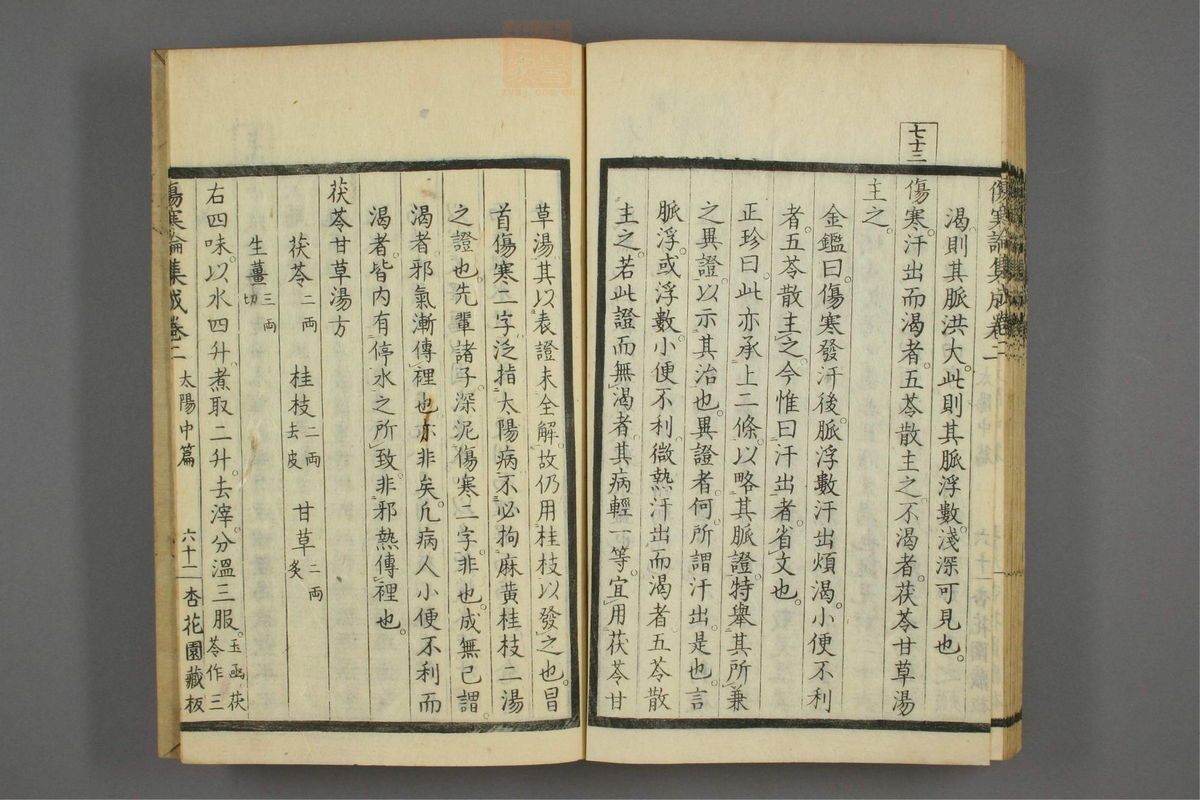 七十三
傷寒論集成卷二
渴。則其脈洪大。此則其脈浮數。淺深可見也。
傷寒。汗出而渴者。五苓散主之。不渴者。茯苓甘草湯
主之。
金鑑曰。傷寒發汗後。脈浮數汗出煩渴。小便不利
者。五苓散主之。今惟曰汗出者。省文也。
正珍曰。此亦承上二條。以略其脈證。特舉其所兼
之異證。以示其治也。異證者何。所謂汗出。是也。言
脈浮。或浮數。小便不利。微熱汗出而渴者五苓散
主之。若此證而無渴者。其病輕一等。宜用茯苓甘
草湯其以表證未全解。故仍用桂枝以發之也。冒
首傷寒二字。泛指太陽病。不必拘麻黃桂枝二湯
之證也。先輩諸子。深泥傷寒二字。非也。成無已謂。
渴者。邪氣漸傳裡也。亦非矣。凡病人小便不利而
渴者。皆內有停水之所致。非邪熱傳裡也。
茯苓甘草湯方
茯苓二兩 桂枝二兩去皮 甘草二兩炙
生薑三兩切
右四味。以水四升。煮取二升。去滓。分溫三服。玉函茯苓作三
傷寒論集成卷二 太陽中篇 六十二 杏花園藏板